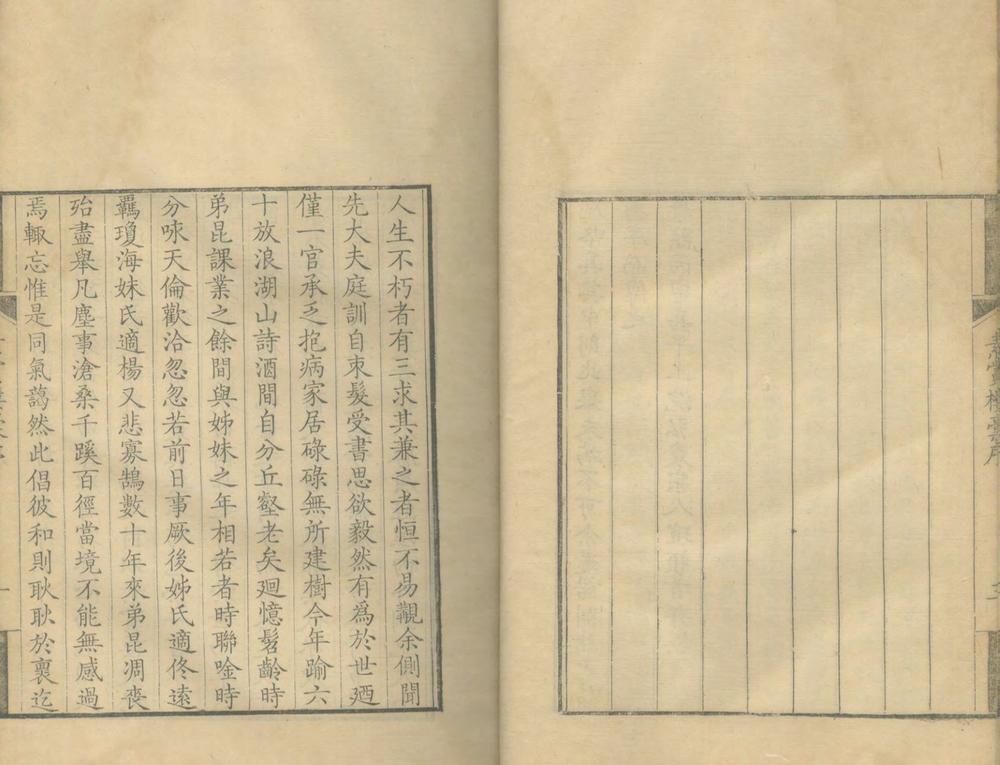 人生不朽者有三求其兼之者恒不易覯余側聞
先大夫庭訓自束髮受書思欲毅然有爲於世廼
僅一官承乏抱病家居碌碌無所建樹今年踰六
十放浪湖山詩酒間自分丘壑老矣廻憶髫齡時
弟昆課業之餘間與姊妹之年相若者時聯唫時
分咏天倫歡洽忽忽若前日事厥後姊氏適佟遠
羈瓊海妹氏適楊又悲寡鵠數十年來弟昆凋喪
殆盡舉凡塵事滄桑千蹊百徑當境不能無感過
焉輙忘惟是同氣藹然此倡彼和則耿耿於裏迄